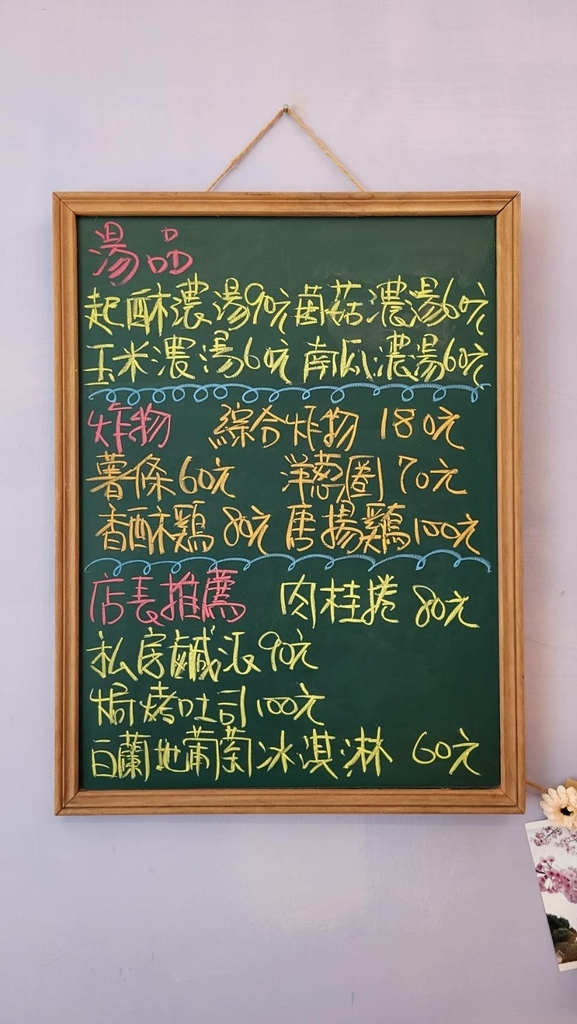 湯品
起酥濃湯90元 菌菇濃湯60元
玉米濃湯60元 南瓜濃湯60元
炸物 綜合炸物 180元
薯條60元 洋蔥圈 70元
香酥鶏 80元 唐揚鶏100元
店長推薦 肉桂捲 80元
私房鹹派90元
焗烤吐司100元
白蘭地葡萄冰淇淋 60元